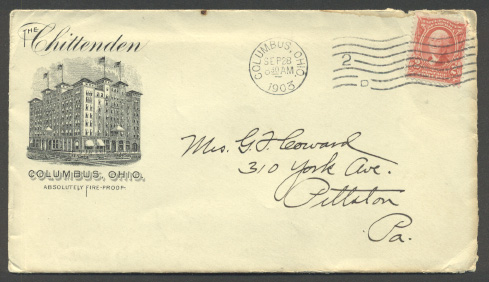 THE
Chittenden
COLUMBUS, OHIO.
ABSOLUTELY FIRE-PROOF.
COLUMBUS, OHIO.
SEP 28
AM
1903
2
D
Mrs. G. F. Coward
310 York Ave.
Pittston
Pa.